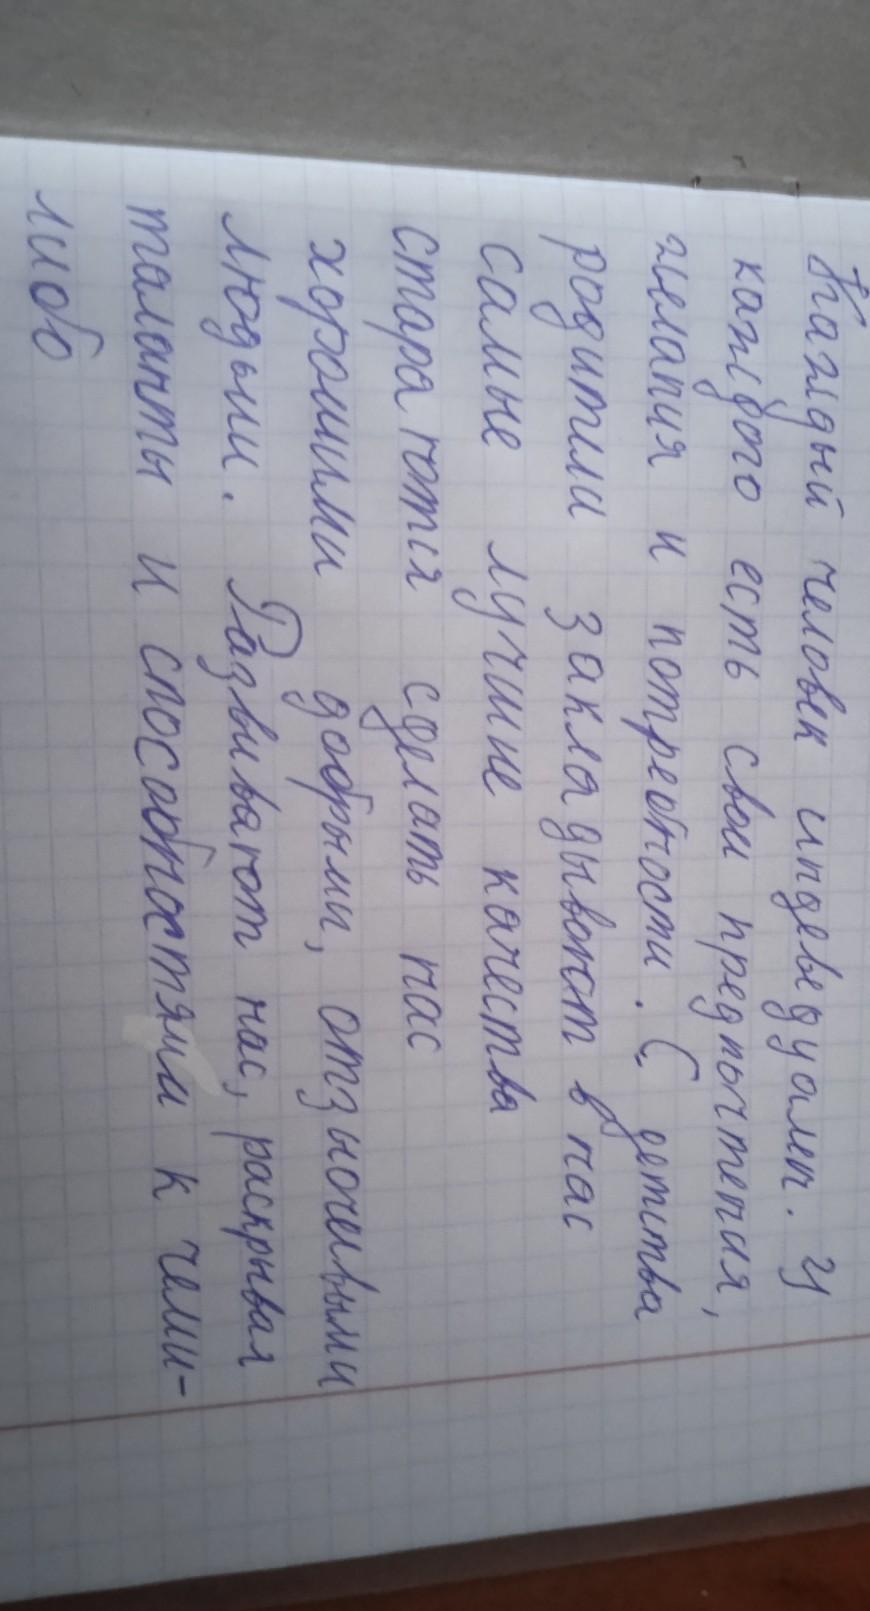 Каждый человек индеведуален. У
каждого есть свои предпычтения,
желания и потребности. С детства
родители закладывают в нас
самые лучшие качества
стараются сделать нас
хорошими добрыми, отзыочевыми
людьми. Развивают нас, раскрывая
таланты и способностями к чеми-
либо